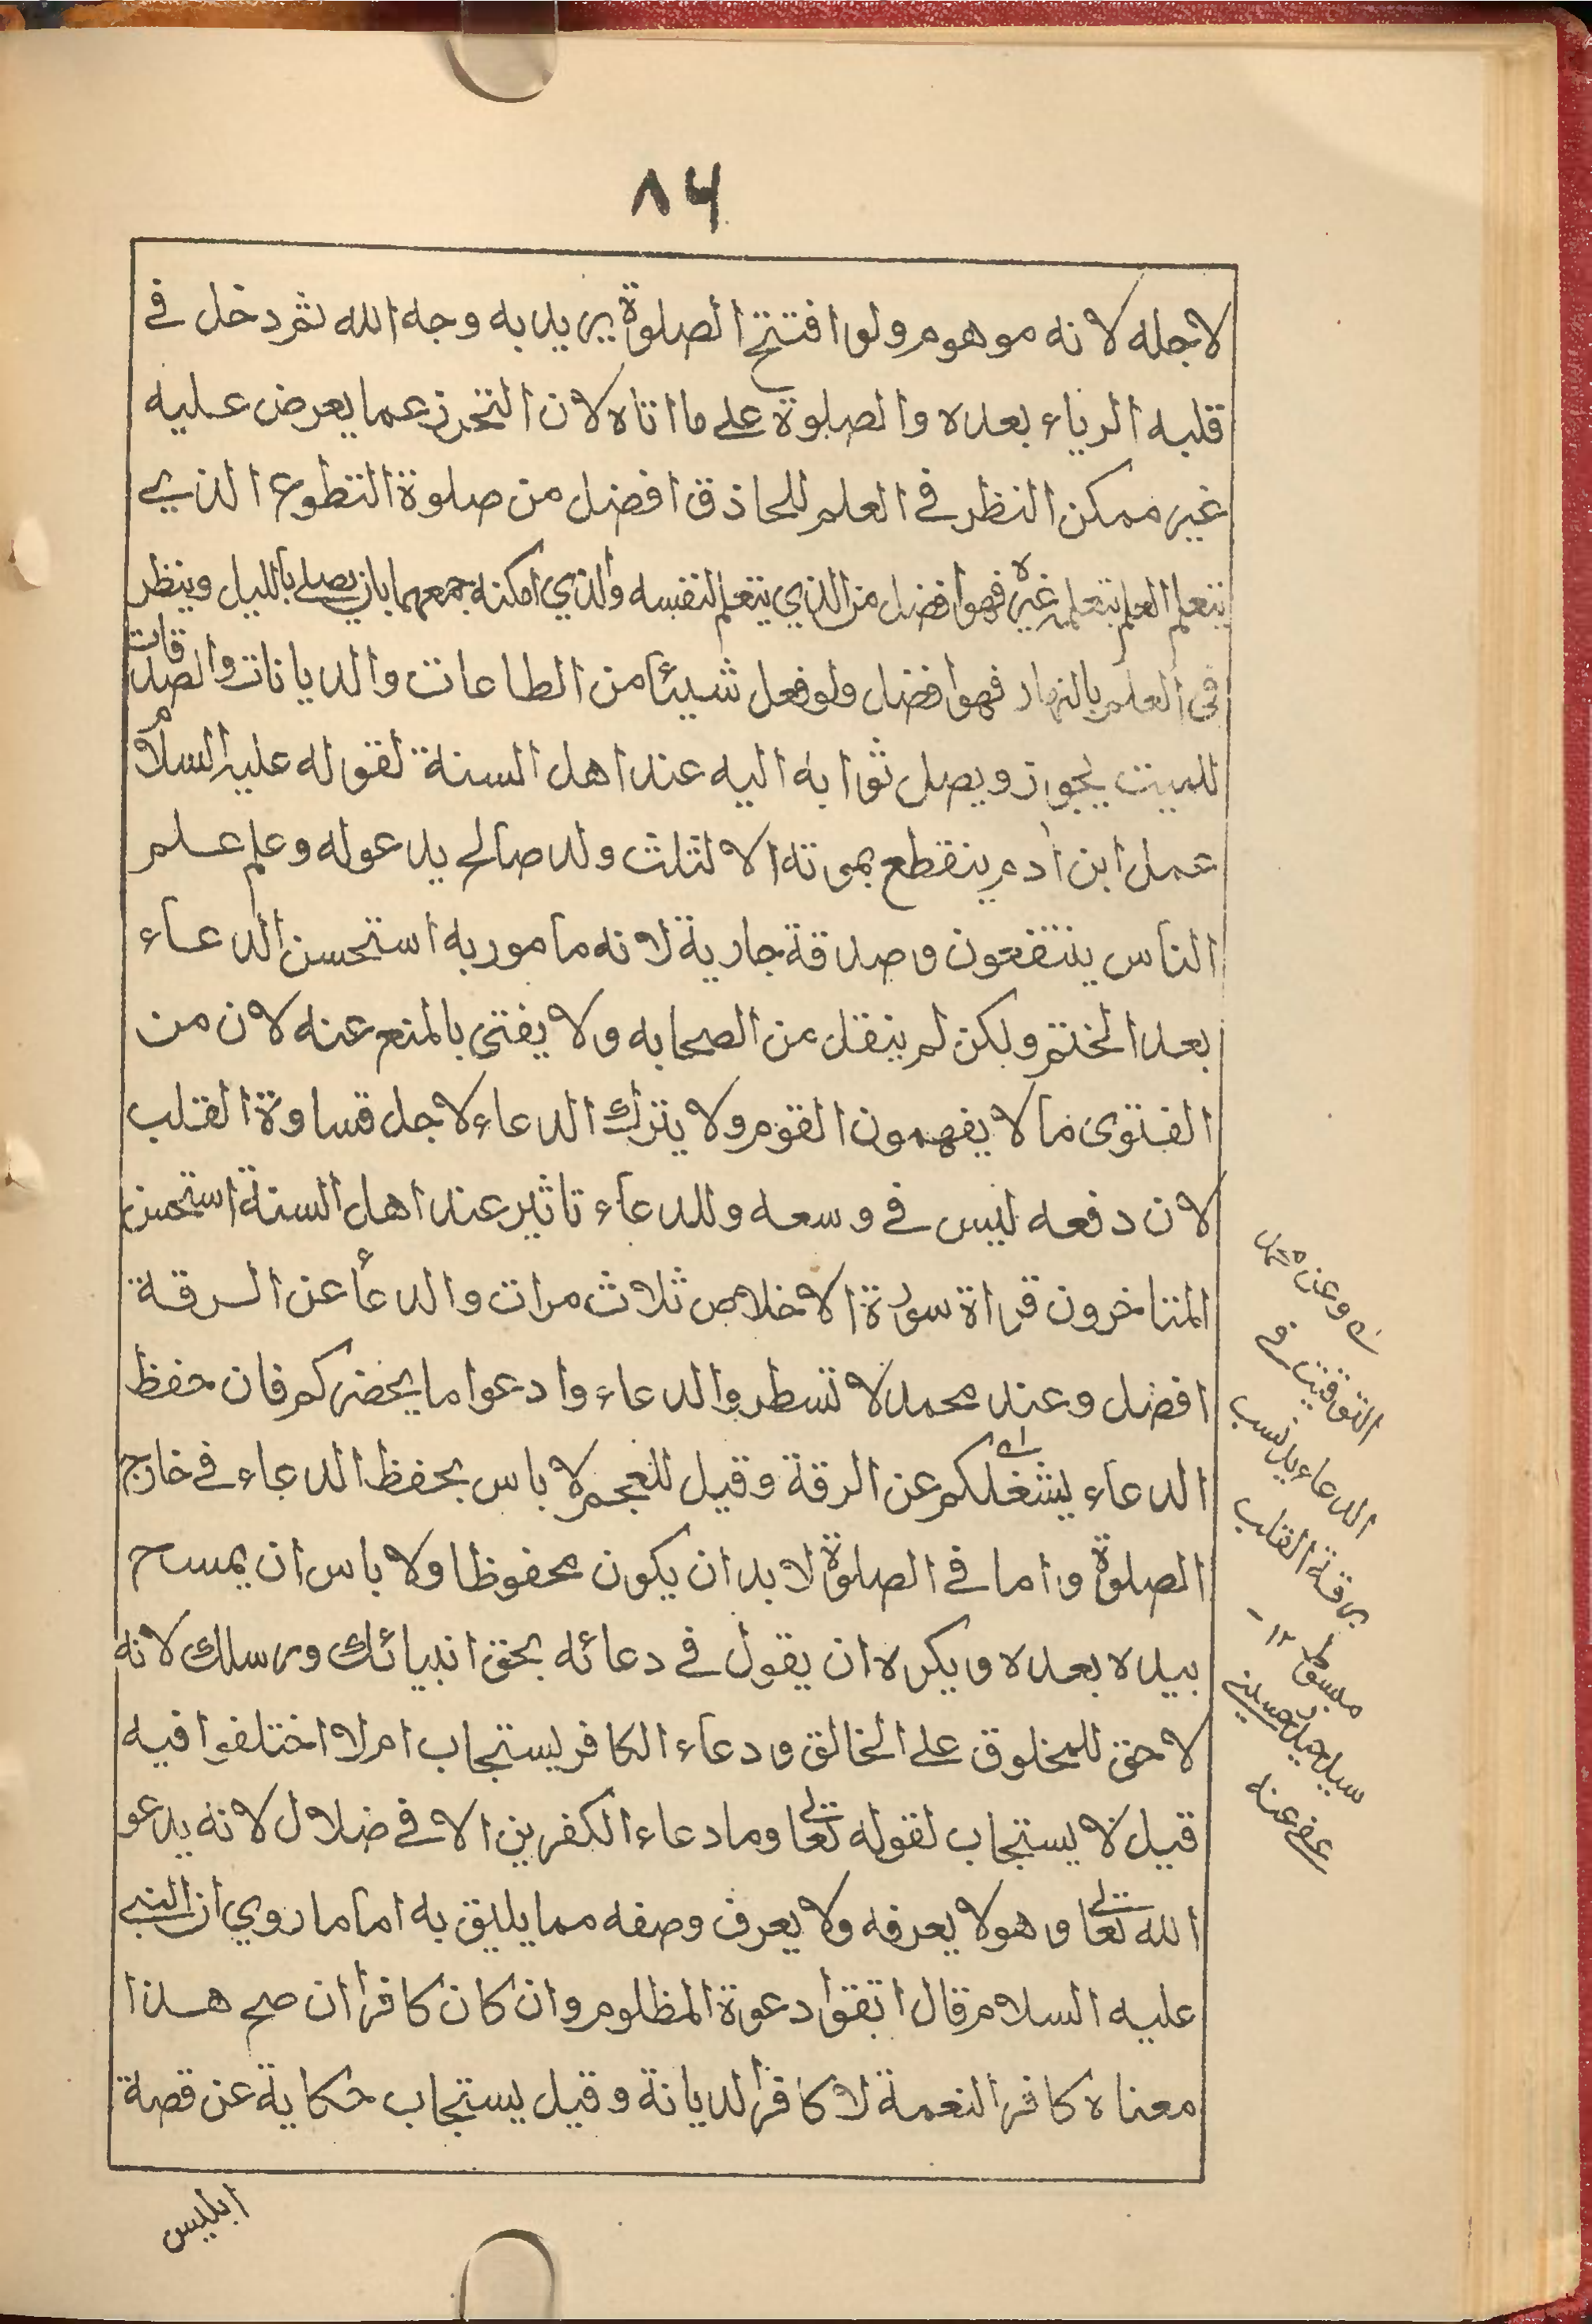 ۸۴
لاجله لانه موهوم ولو افتتح الصلوة يريد به وجه الله ثم دخل في
قلبه الرياء بعده والصلوة على ما اتاه لان التحرز عما يعرض عليه
غير ممكن النظر في العلم للحاذق افضل من صلوة التطوع الذي
يتعلم العلم يتعلم غيره فهو افضل من الذي يتعلم لنفسه والذي امكنه جمعهما بان يصلي بالليل وينظر
في العلم بالنهار فهو افضل ولو فعل شيئا من الطاعات والديانات والصدقات
للميت يجوز ويصل ثوابه اليه عند اهل السنة لقوله عليه السلام
عمل ابن ادم ينقطع بموته الا لثلث ولد صالح يدعوله وعلم علم
الناس ينتفعون وصدقة جارية لانه مامور به استحسن الدعاء
بعد الختم ولكن لم ينقل عن الصحابه ولا يفتى بالمنع عنه لان من
الفتوى ما لا يفهمون القوم ولا يترك الدعاء لاجل قساوة القلب
لان دفعه ليس في وسعه وللدعاء تاثير عند اهل السنة استحسن
المتاخرون قراة سورة الاخلاص ثلاث مرات والدعأ عن الرقة
افضل وعند محمد لا تسطروا الدعاء وادعوا ما يحضركم فان حفظ
الدعاء يشغلكم عن الرقة وقيل للعجم لا باس بحفظ الدعاء في خارج
الصلوة واما في الصلوة لا بد ان يكون محفوظا ولا باس ان يمسح
بيده بعده ويكره ان يقول في دعائه بحق انبيائك ورسلك لانه
لا حق للمخلوق على الخالق ودعاء الكافر يستجاب ام لا اختلفوا فيه
قيل لا يستجاب لقوله تعالى وما دعاء الكفرين الا في ضلال لانه يدعو
الله تعالى وهو لا يعرفه ولا يعرف وصفه مما يليق به اما ما روي ان النبي
عليه السلام قال اتقوا دعوة المظلوم وان كان كافرا ان صح هذا
معناه كافر النعمة لا كافر الديانة وقيل يستجاب حكاية عن قصة
ابليس
وعن محمد
التوقيت في
الدعاء يذهب
برقة القلب
مبسوط ۱۲
عفي عنه